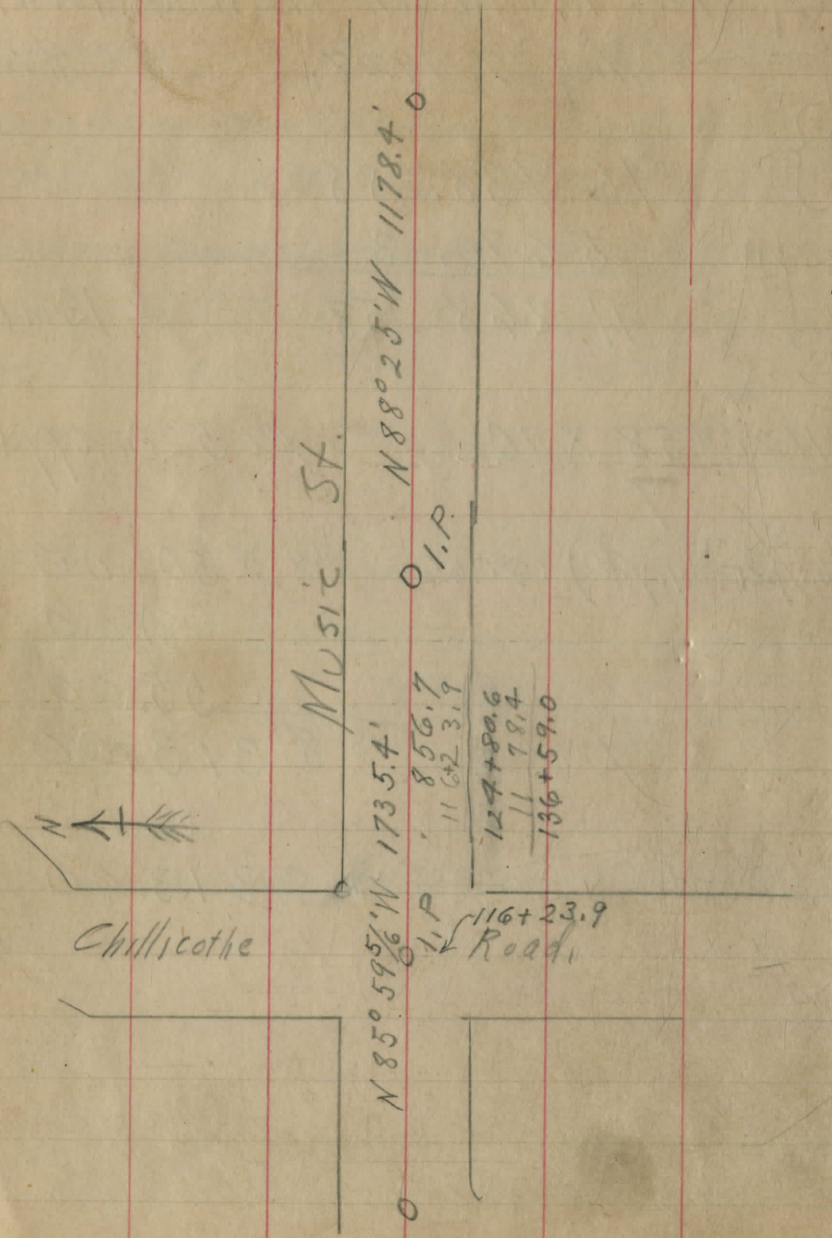 N
Music St.
N 88° 25' W 1178.4'
I.P.
N 85° 59 5/6' W 1735.4'
856.7
116+23.9
124+80.6
11 78.4
136+59.0
I.P
116+23.9
Chillicothe Road.